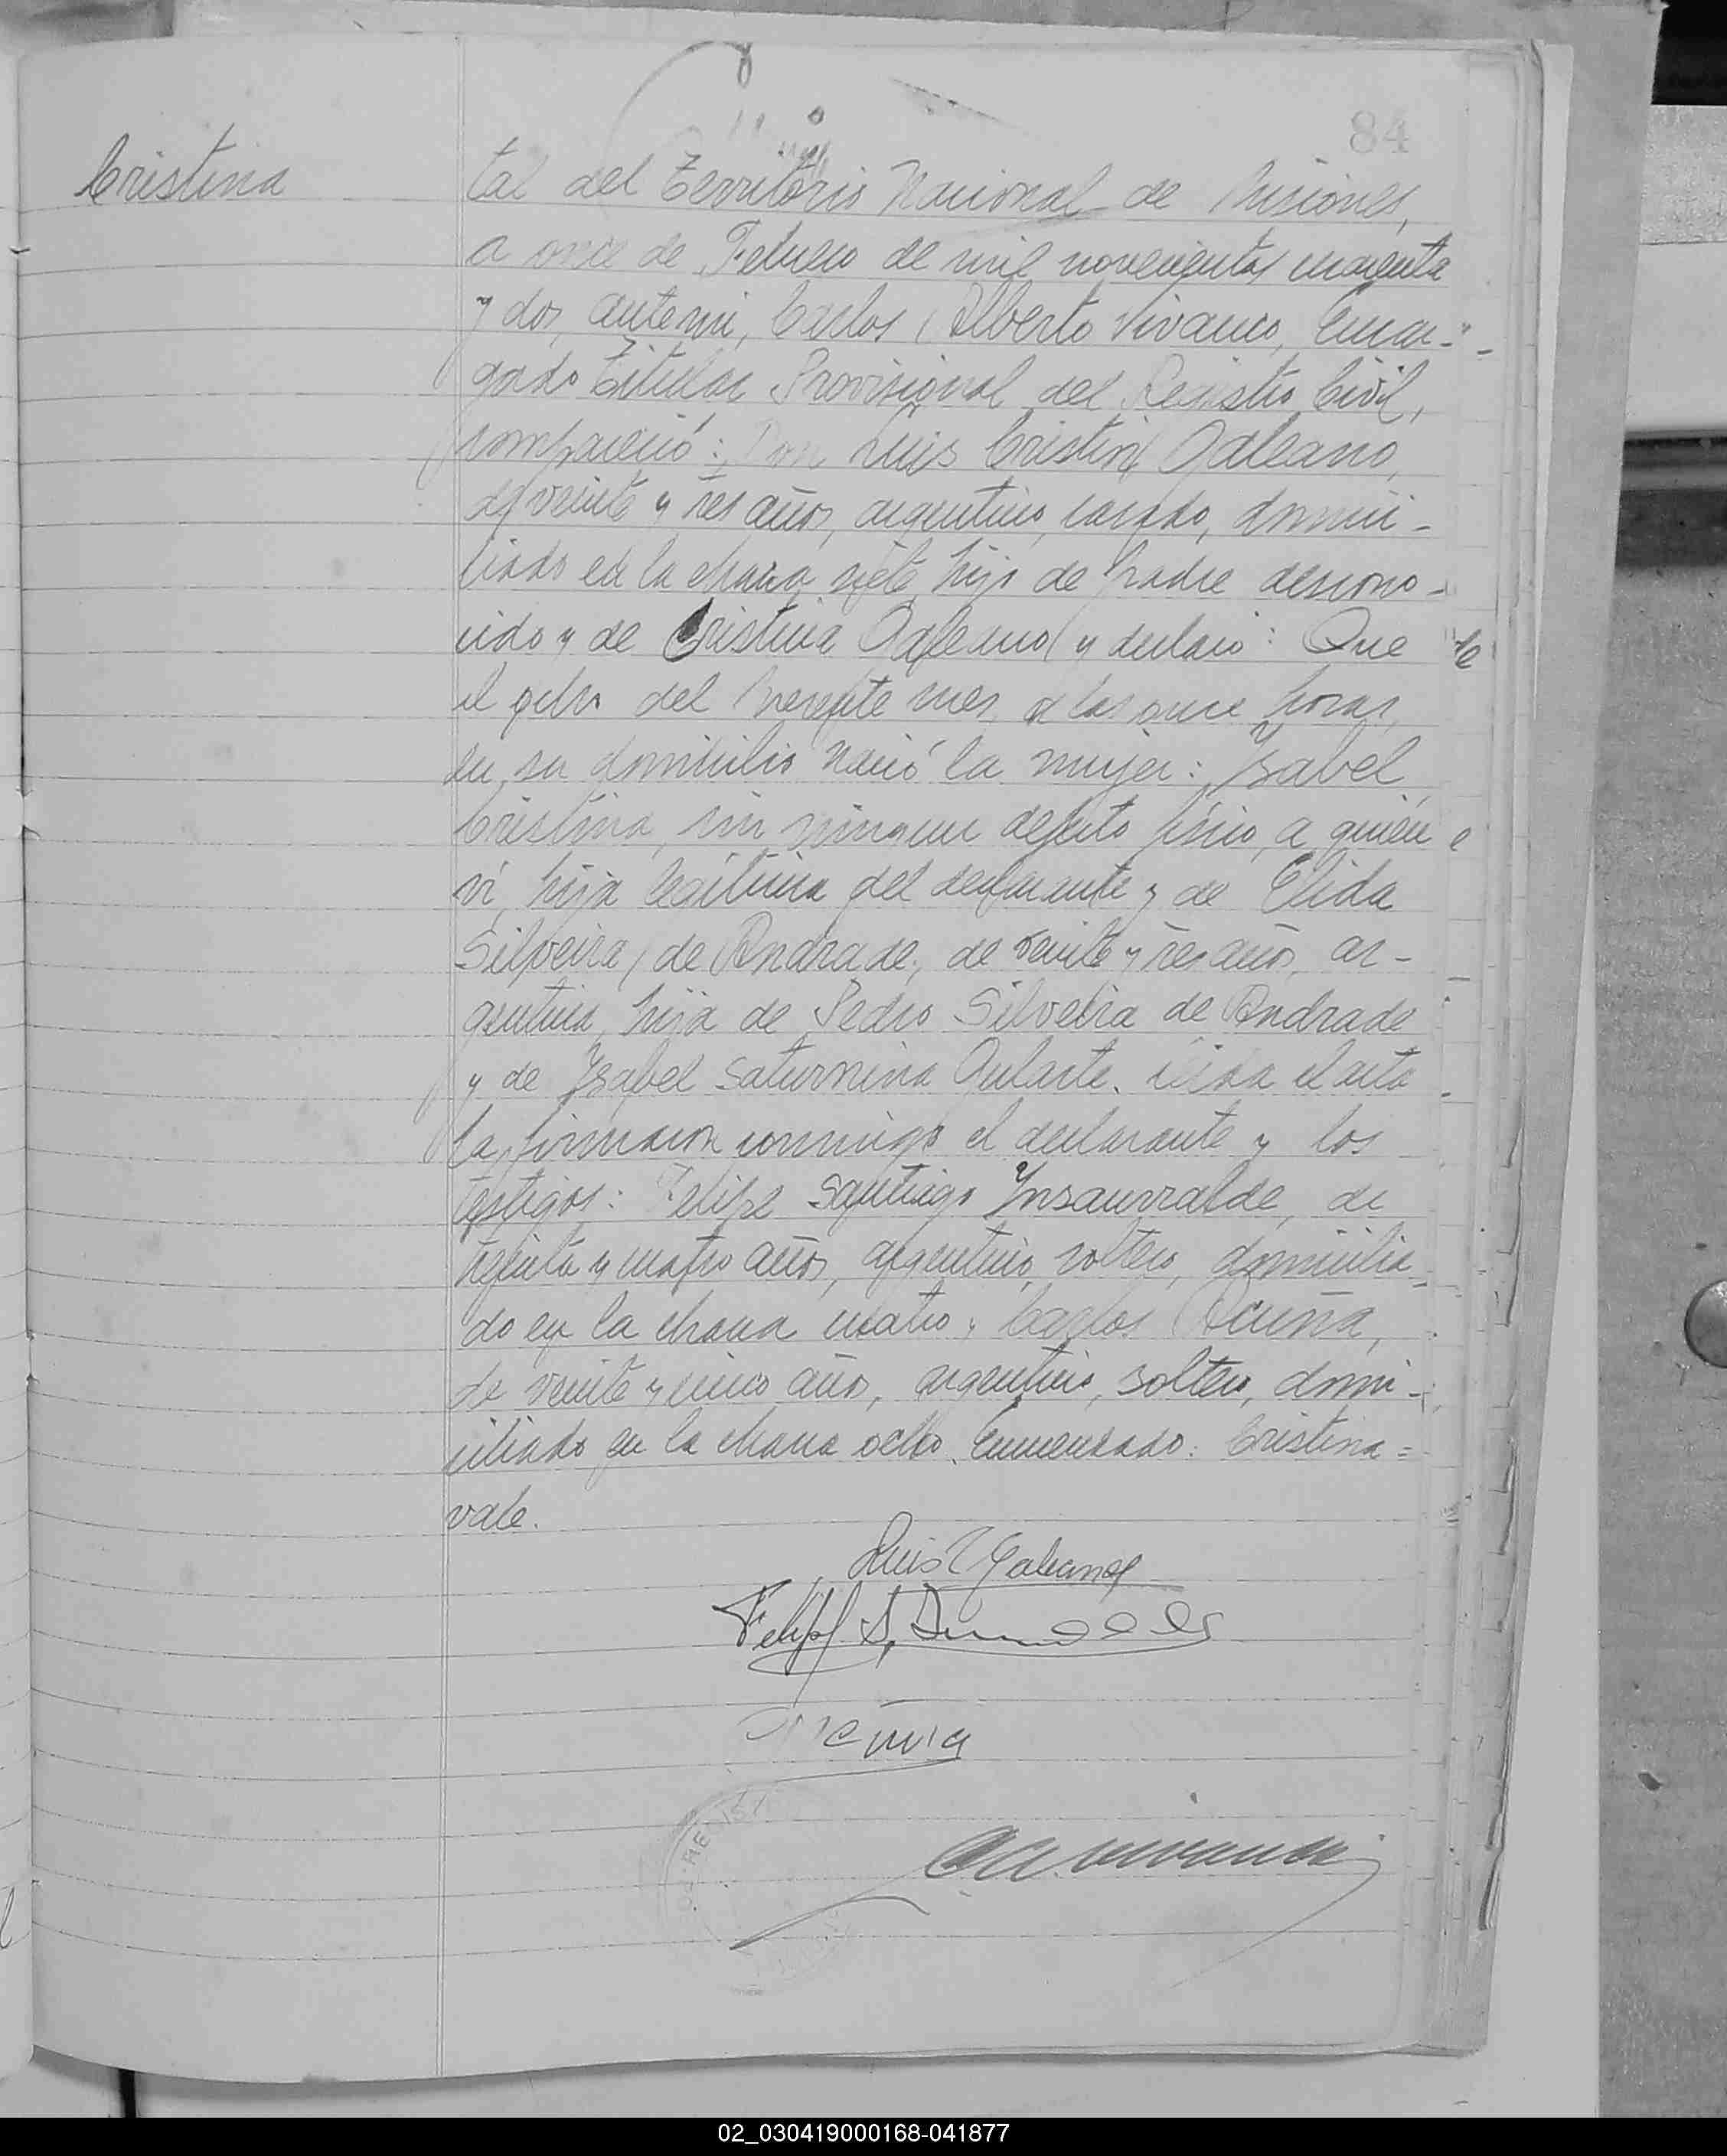 84
Cristina
tal del Territorio Nacional de Misiones,
a once de Febrero de mil novecientos cuarenta
y dos, ante mi, Carlos Alberto Vivanco, Encar-
gado Titular Provisional del Registro Civil,
compareció: Don Luis Cristin Galeano,
de veinte y tres años, argentino, casado, domici-
liado en la chacra siete, hijo de padre descono-
cido y de Cristina Galeano y declaró: Que
el ocho del presente mes, a las once horas,
en su domicilio nació la mujer: Ysabel
Cristina, sin ningun defecto físico, a quien
ví, hija legítima del declarante y de Elida
Silveira de Andrade, de veinte y tres años, ar-
gentina, hija de Pedro Silveira de Andrade
y de Ysabel Saturnina Gularte. Leída el acta
la firmaron conmigo el declarante y los
testigos: Felipe Santiago Ynsaurralde, de
treinta y cuatro años, argentino, soltero, domicilia-
do en la chacra cuatro y Carlos Acuña,
de veinte y cinco años, argentino, soltero, domi-
ciliado en la chacra ocho. Enmendado: Cristina =
vale.
Luis C Galeano
Felipe S.
Acuña
CAVivanco